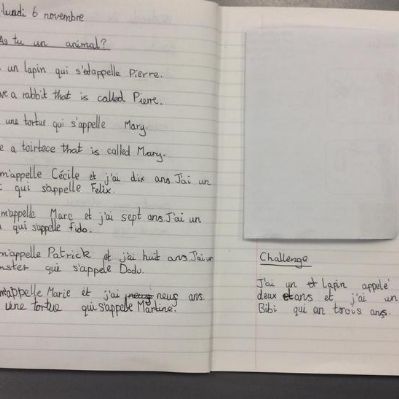 lundi 6 novembre
As tu un animal?
un lapin qui s'edappelle Pierre.
a rabbit that is called Pierre.
une tortue qui s'appelle Mary.
a toirtoce that is called Mary.
m'appelle Cécile et j'ai dix ans J'ai un
qui s'appelle Felix.
m'appelle Marc et j'ai sept ans. J'ai un
qui s'appelle Fido.
m'appelle Patrick et j'ai huit ans J'ai un
qui s'appele Dodu.
m'appelle Marie et j'ai neug ans
une tortue qui s'appelle Martine.
Challenge
J'ai un Lapin appelé
deux ans et j'ai un
Bibi qui an trouis ans.